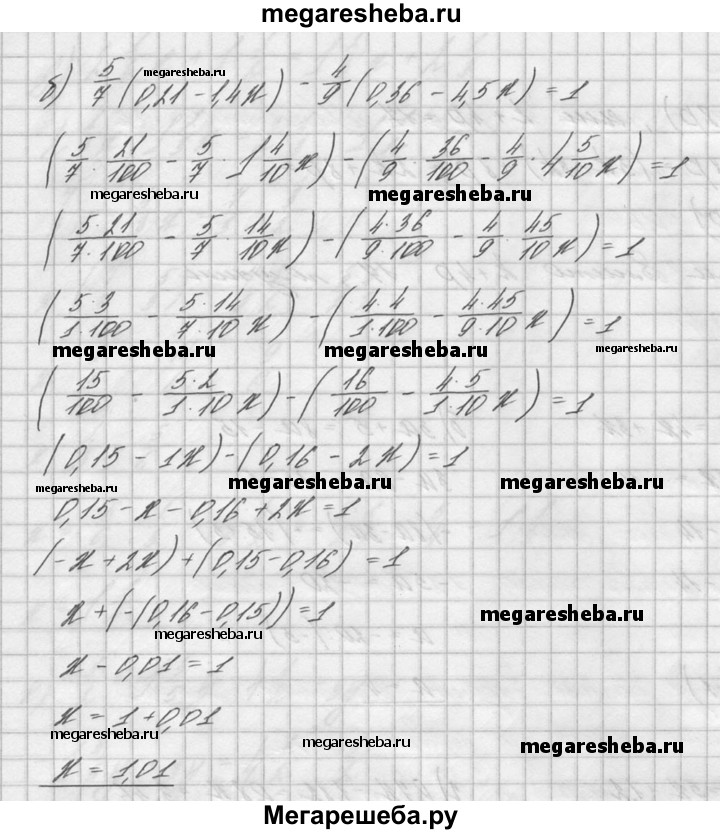 megaresheba.ru
б) 5/7 (0,21 - 1,4x) - 4/9 (0,36 - 4,5x) = 1
megaresheba.ru
(5/7 · 21/100 - 5/7 · 1 4/10 x) - (4/9 · 36/100 - 4/9 · 4 5/10 x) = 1
megaresheba.ru megaresheba.ru
(5·21/7·100 - 5/7 · 14/10 x) - (4·36/9·100 - 4/9 · 45/10 x) = 1
(5·3/1·100 - 5·14/7·10 x) - (4·4/1·100 - 4·45/9·10 x) = 1
megaresheba.ru megaresheba.ru megaresheba.ru
(15/100 - 5·2/1·10 x) - (16/100 - 4·5/1·10 x) = 1
(0,15 - 1x) - (0,16 - 2x) = 1
megaresheba.ru megaresheba.ru megaresheba.ru
0,15 - x - 0,16 + 2x = 1
(-x + 2x) + (0,15 - 0,16) = 1
x + (-(0,16 - 0,15)) = 1
megaresheba.ru megaresheba.ru
x - 0,01 = 1
x = 1 + 0,01
megaresheba.ru megaresheba.ru megaresheba.ru
x = 1,01
Мегарешеба.ру